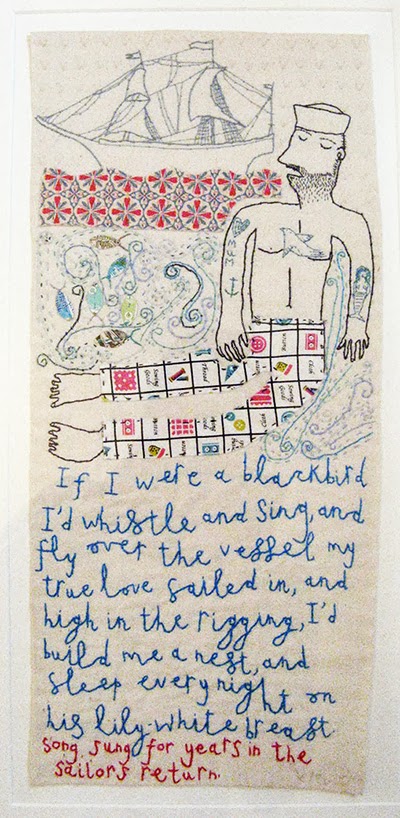 If I were a blackbird
I'd whistle and sing, and
fly over the vessel my
true love sailed in, and
high in the rigging, I'd
build me a nest, and
sleep every night on
his lily-white breast
song sung for years in the
sailors return.